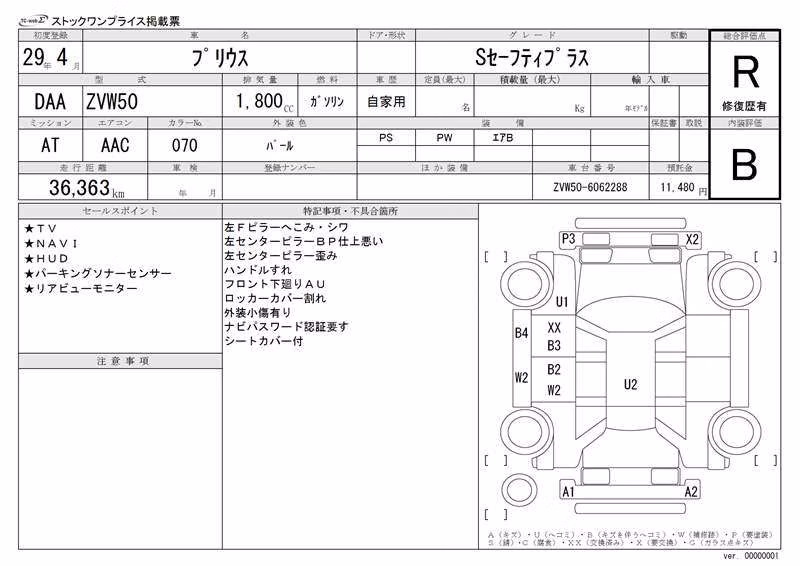 TC-webΣ ストックワンプライス掲載票
初度登録 車名 ドア・形状 グレード 駆動 総合評価点
29年 4月 プリウス Sセーフティプラス R
修復歴有
型式 排気量 燃料 車歴 定員(最大) 積載量(最大) 輸入車
DAA ZVW50 1,800CC ガソリン 自家用 名 Kg 年モデル
ミッション エアコン カラーNo. 外装色 装備 保証書 取説 内装評価
AT AAC 070 パール PS PW エアB B
走行距離 車検 登録ナンバー ほか装備 車台番号 預託金
36,363km 年 月 ZVW50-6062288 11,480円
セールスポイント
★TV
★NAVI
★HUD
★パーキングソナーセンサー
★リアビューモニター
注意事項
特記事項・不具合箇所
左Fピラーへこみ・シワ
左センターピラーBP仕上悪い
左センターピラー歪み
ハンドルすれ
フロント下廻りAU
ロッカーカバー割れ
外装小傷有り
ナビパスワード認証要す
シートカバー付
P3 X2
[ ] [ ]
U1
B4 XX
B3
W2 B2
W2
U2
[ ] [ ]
A1 A2
[ ]
A(キズ)・U(ヘコミ)・B(キズを伴うヘコミ)・W(補修跡)・P(要塗装)
S(錆)・C(腐食)・XX(交換済み)・X(要交換)・G(ガラス点キズ)
ver. 00000001